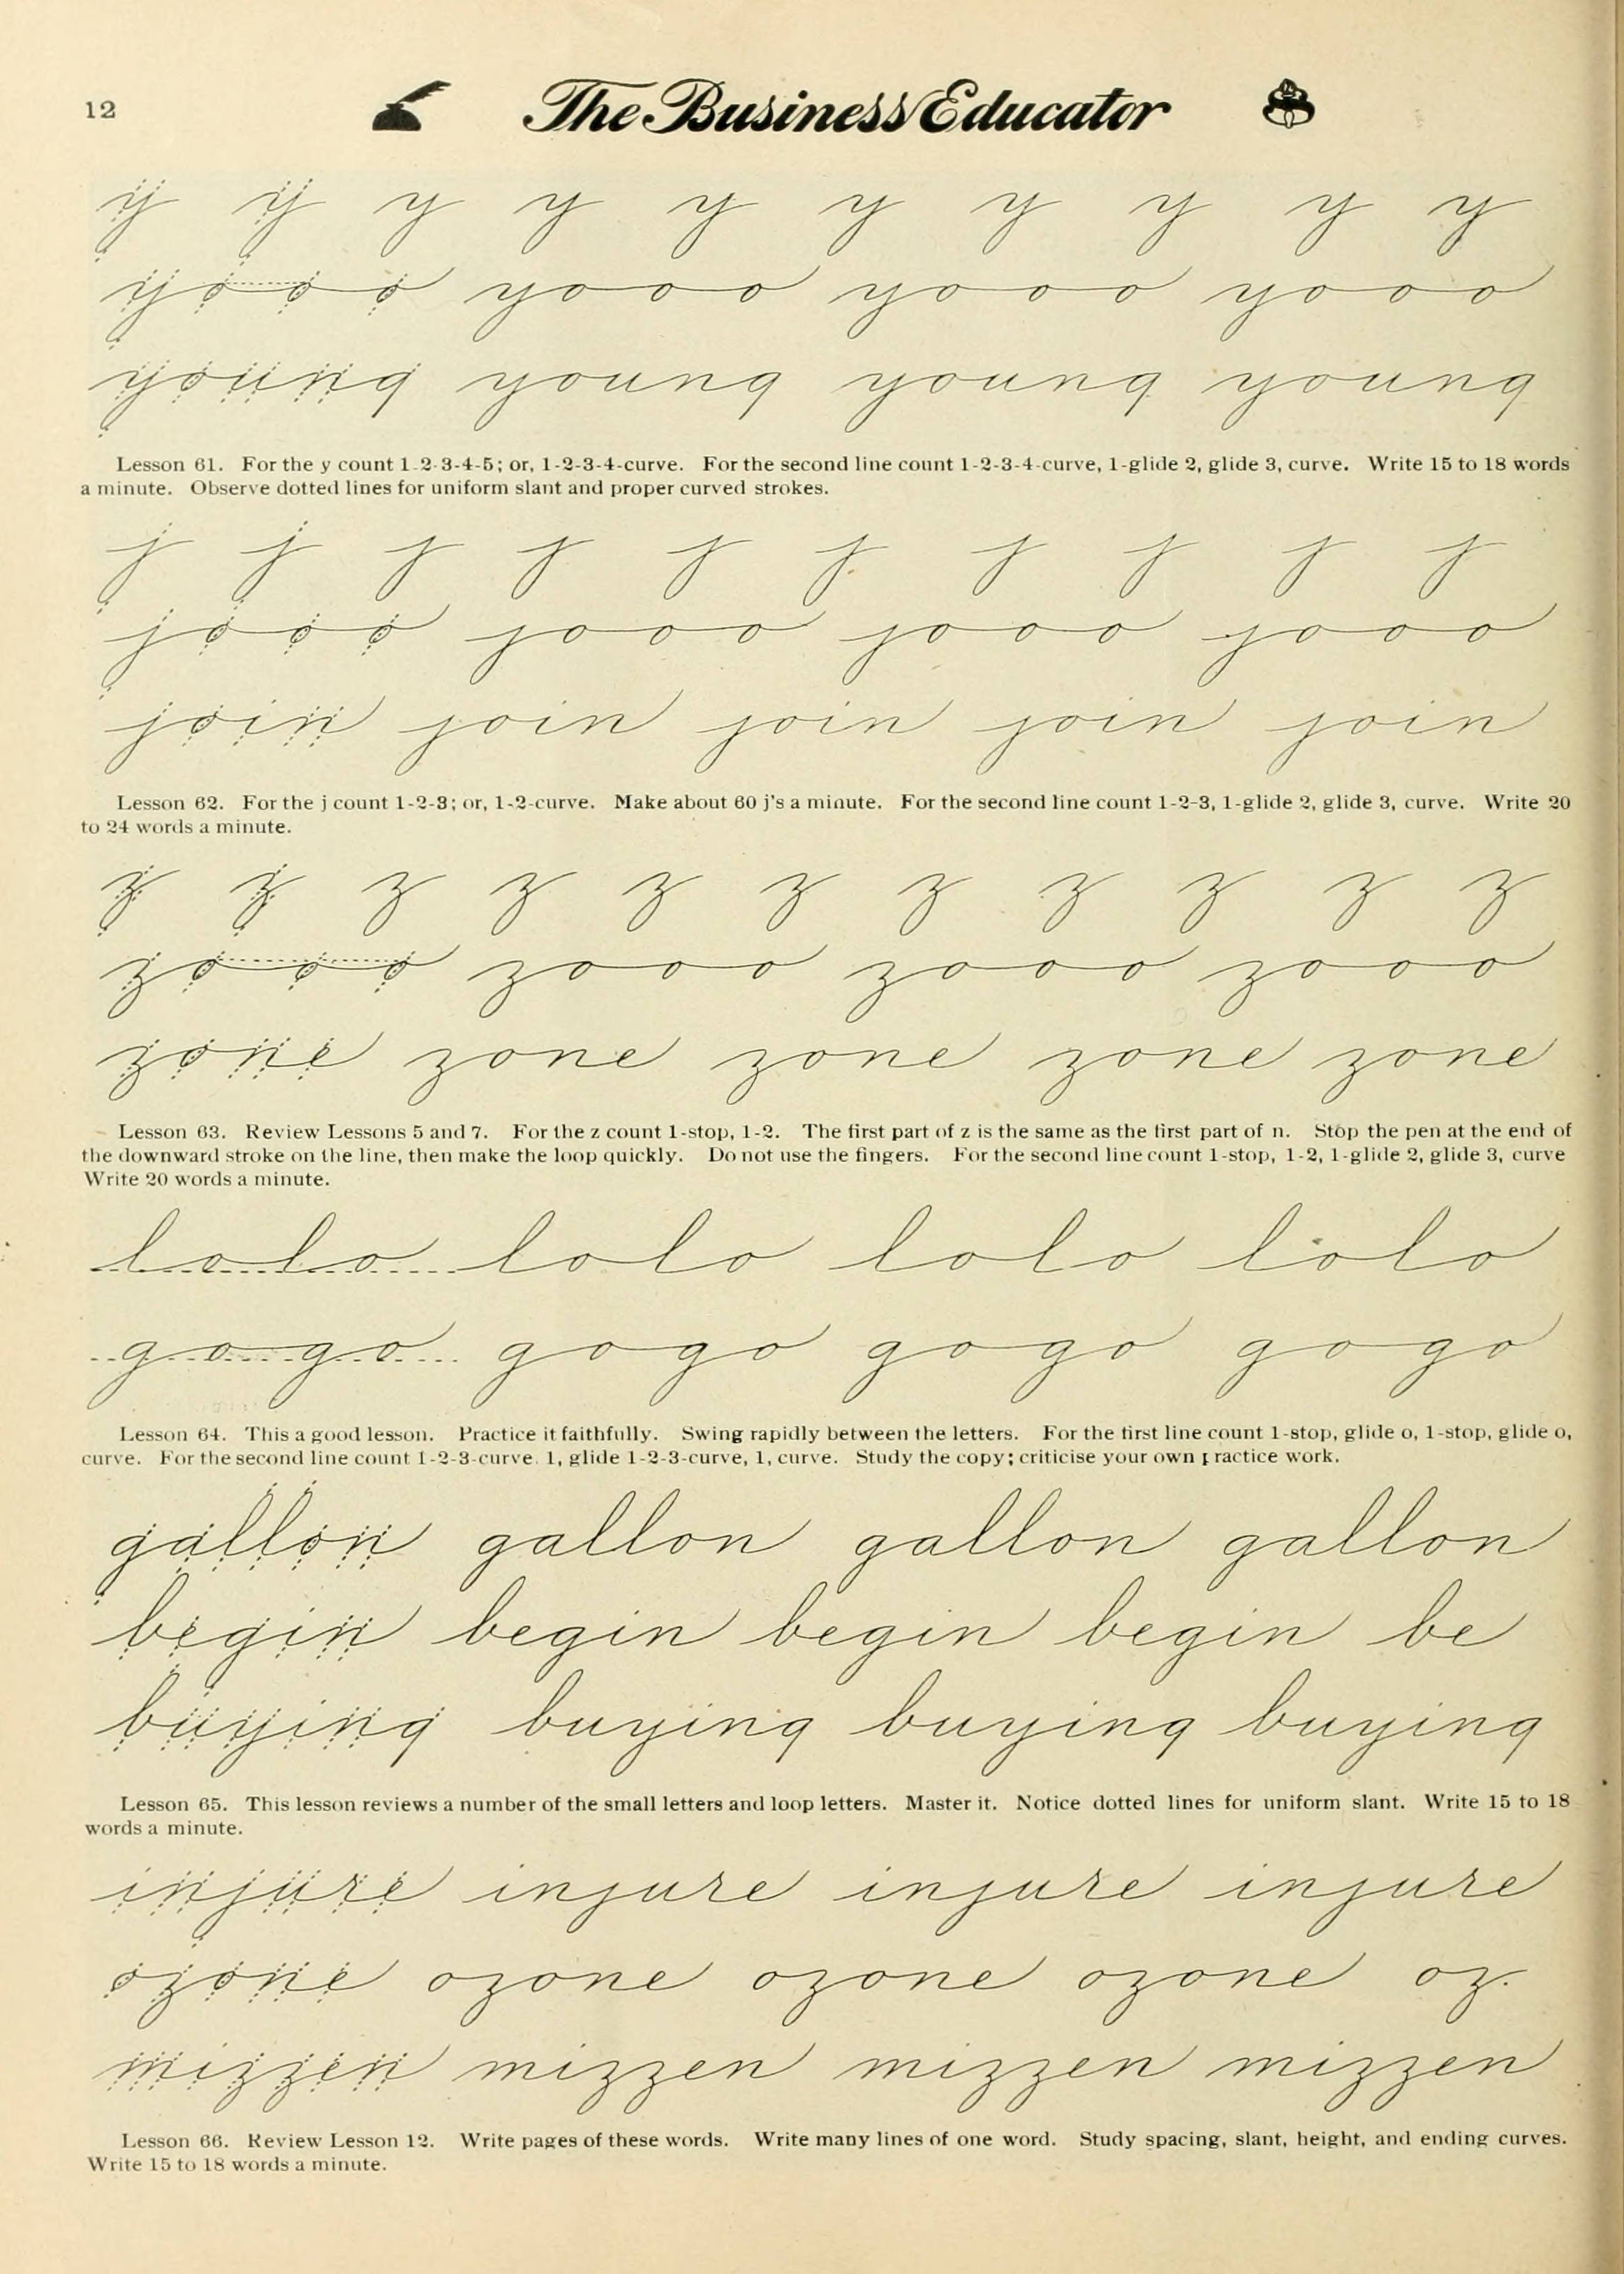 12
The Business Educator
y y y y y y y y y y
yooo yooo yooo yooo
young young young young
Lesson 61. For the y count 1-2-3-4-5; or, 1-2-3-4-curve. For the second line count 1-2-3-4-curve, 1-glide 2, glide 3, curve. Write 15 to 18 words
a minute. Observe dotted lines for uniform slant and proper curved strokes.
j j j j j j j j j j
jooo jooo jooo jooo
join join join join join
Lesson 62. For the j count 1-2-3; or, 1-2-curve. Make about 60 j's a minute. For the second line count 1-2-3, 1-glide 2, glide 3, curve. Write 20
to 24 words a minute.
z z z z z z z z z z z
zooo zooo zooo zooo
zone zone zone zone zone
Lesson 63. Review Lessons 5 and 7. For the z count 1-stop, 1-2. The first part of z is the same as the first part of n. Stop the pen at the end of
the downward stroke on the line, then make the loop quickly. Do not use the fingers. For the second line count 1-stop, 1-2, 1-glide 2, glide 3, curve
Write 20 words a minute.
lolo lolo lolo lolo
gogo gogo gogo gogo
Lesson 64. This a good lesson. Practice it faithfully. Swing rapidly between the letters. For the first line count 1-stop, glide o, 1-stop, glide o,
curve. For the second line count 1-2-3-curve, 1, glide 1-2-3-curve, 1, curve. Study the copy; criticise your own practice work.
gallon gallon gallon gallon
begin begin begin begin be
buying buying buying buying
Lesson 65. This lesson reviews a number of the small letters and loop letters. Master it. Notice dotted lines for uniform slant. Write 15 to 18
words a minute.
injure injure injure injure
ozone ozone ozone ozone oz.
mizzen mizzen mizzen mizzen
Lesson 66. Review Lesson 12. Write pages of these words. Write many lines of one word. Study spacing, slant, height, and ending curves.
Write 15 to 18 words a minute.